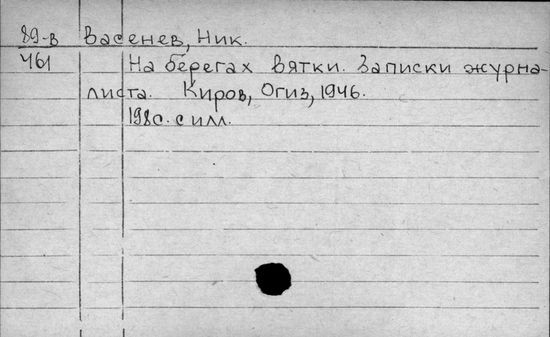 89-в Васенев, Ник.
461 На берегах Вятки. Записки журна-
листа. Киров, Огиз, 1946.
198с. с илл.